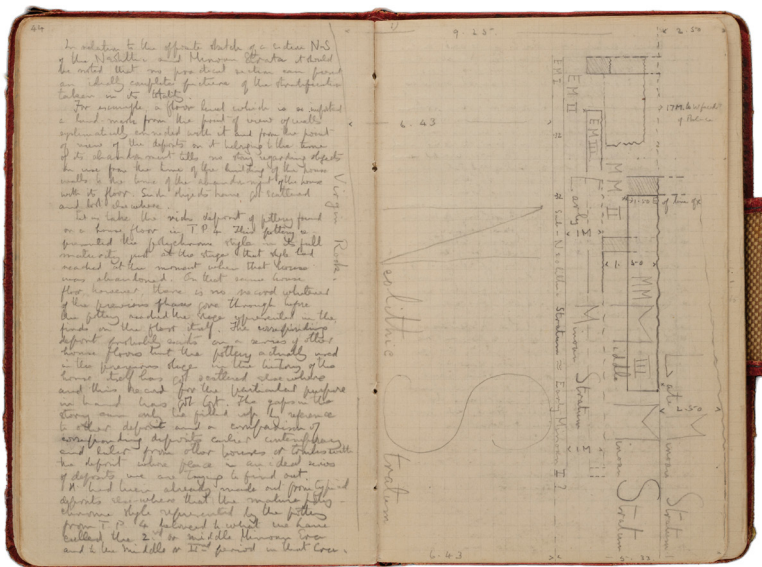 44
In relation to the opposite sketch of a section N-S
of the Neolithic and Minoan Strata it should
be noted that no practical section can present
an ideally complete picture of the stratification
taken in its totality.
For example, a floor level which is so
a land mark from the point of view of walls
systematically connected with it and from the point
of view of the deposits on it belonging to the time
of its abandonment tells us nothing regarding objects
in use from the time of the building of the house
walls to the time of the abandonment of the house
with its floor. Such objects have got scattered
and lost elsewhere.
Let us take the rich deposit of pottery found
on a house floor in T.P. 4. This pottery
presented the polychrome style in its full
maturity just at the stage that style had
reached at the moment when that house
was abandoned. On that same house
floor however there is no record whatever
of the previous phases gone through before
the pottery reached the stage represented in the
finds on the floor itself. The corresponding
deposit probably exists on a series of other
house floors but the pottery actually used
in the previous stage in the history of the
house itself has got scattered elsewhere
and this record for the particular purpose
in hand has got lost. The gaps in the
story can only be filled up by reference
to other deposits and a comparison of
corresponding deposits earlier contemporary
and later from other houses or tombs with
the deposit whose place in an ideal series
of deposits we are trying to find out.
It had been already made out from typical
deposits elsewhere that the mature poly-
chrome style represented by the pottery
from T.P. 4 belonged to what we have
called the 2nd or middle Minoan
and to the middle or IInd period in that
Virgin Rock.
9.25
2.50
6.43
EM I
EM II
EM III
MM II
MM III
Early Minoan Stratum
Sub-Neolithic Stratum = Early Minoan I?
Middle Minoan Stratum
Late Minoan Stratum
Neolithic Stratum
2.50
6.43